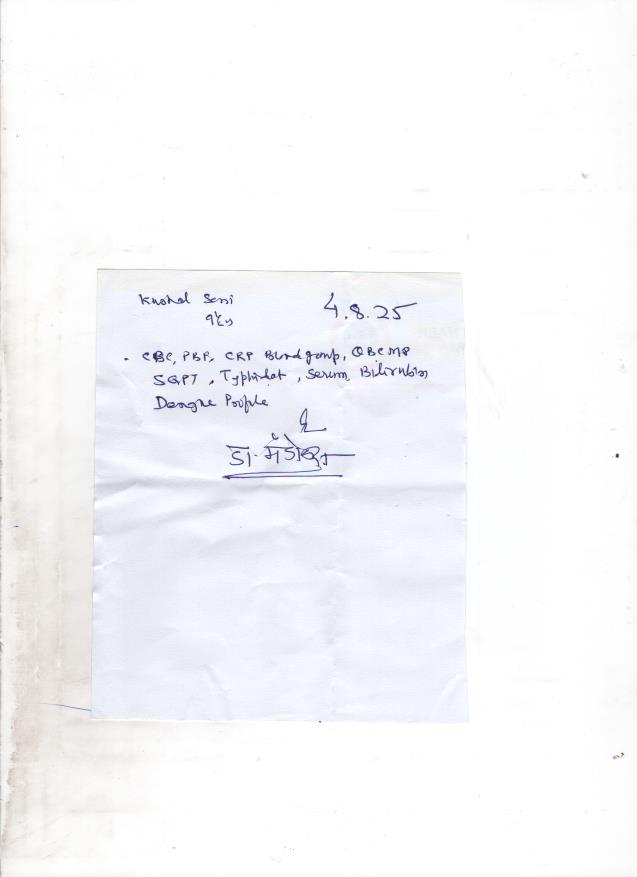 Kushal Soni 4.8.25
9 Yrs
. CBC, PBF, CRP Blood group, QBC MP
SGPT, Typhidot, Serum Bilirubin
Dengue Profile
डा.